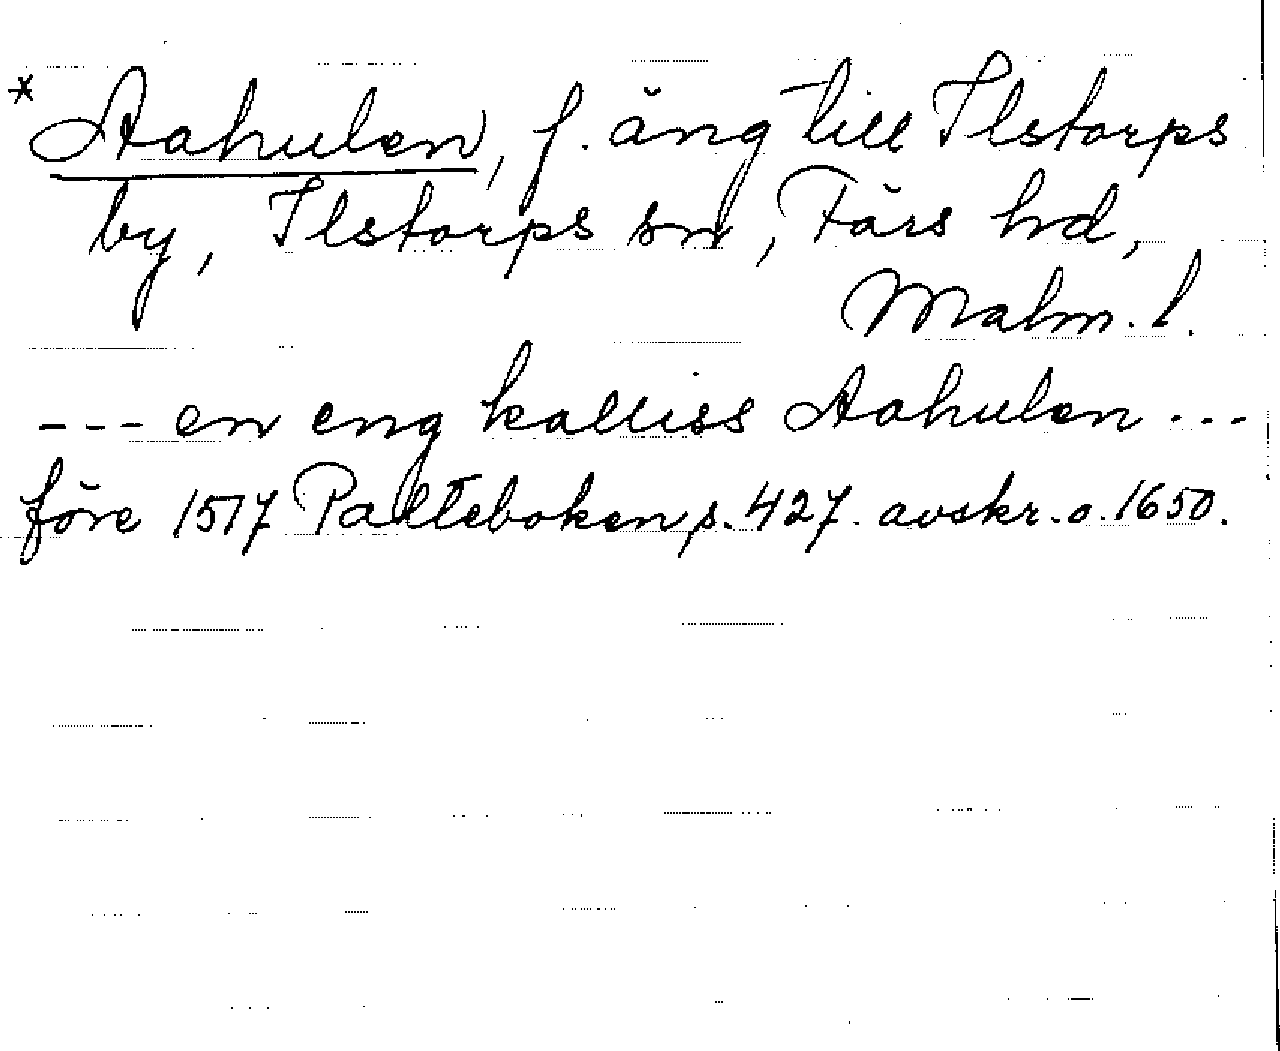 * Aahulen, f. äng till Ilstorps
by, Ilstorps sn, Färs hd,
Malm. l.
--- en eng kalliss Aahulen ...
före 1517 Palteboken p. 427. avskr. o. 1650.